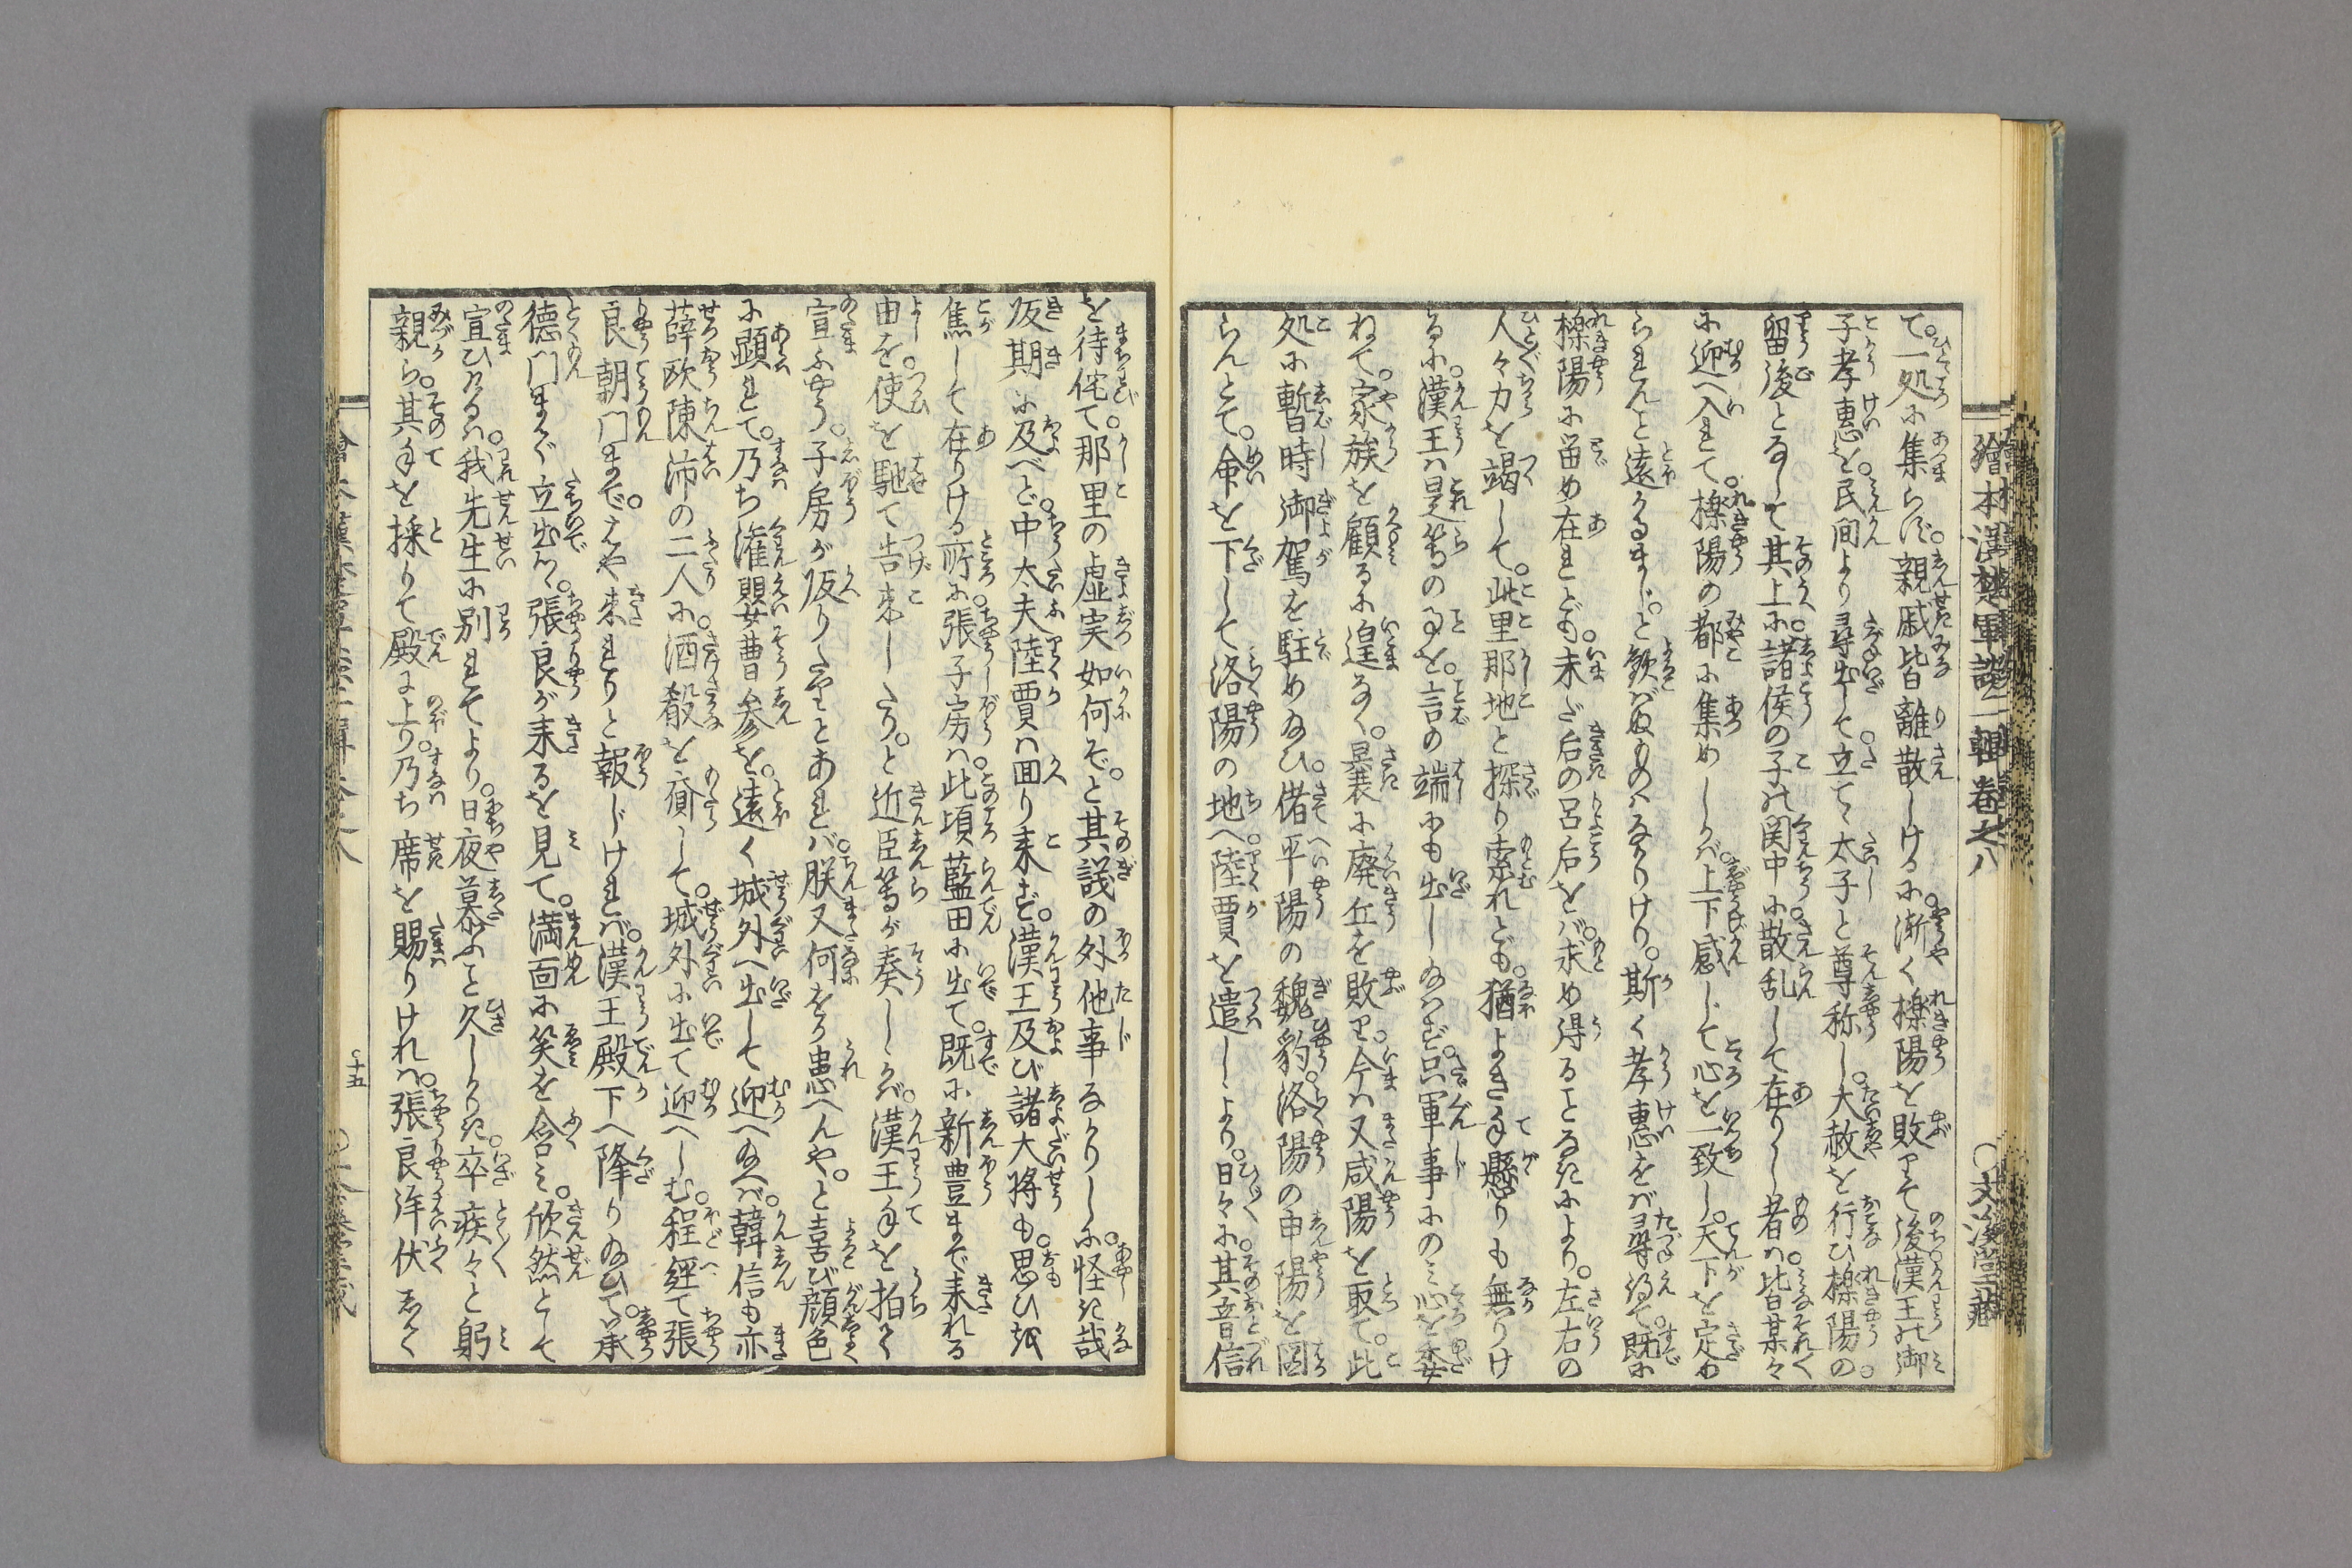 繪本漢楚軍談二輯卷之八
○文溪堂藏
て。一処に集らず。親戚皆離散しけるに。漸く櫟陽を敗りて後。漢王の御
子孝惠を。民間より尋出して。立て太子と尊称し。大赦を行ひ。櫟陽の。
留後となして其上に。諸侯の子の関中に。散乱して在りし者は。皆某々
に迎へ入れて。櫟陽の都に集めしかバ。上下感じて心を一致し。天下を定め
られんと遠かるまじ。と歓バぬものハなかりけり。斯く孝惠をバ尋得て。既に
櫟陽に留め在れども。未だ后の呂后をバ。求め得ることなきにより。左右の
人々力を竭して。此里那地と探り索れども。猶よき手懸りも無りけ
るに。漢王ハ是等の事を。言の端にも出し給はず。只軍事にのミ心を委
ねて。家族を顧るに遑なく。曩に廃丘を敗り。今ハ又咸陽を取て。此
処に暫時御駕を駐め給ひ。偖平陽の魏豹。洛陽の申陽を図
らんとて。命を下して洛陽の地へ。陸賈を遣しより。日々に。其音信
を待侘て。那里の虚実如何ぞ。と其議の外他事なかりしに。怪き哉
皈期に及べど。中大夫陸賈ハ回り来ず。漢王及び諸大将も。思ひ
焦して在りける所に。張子房ハ。此頃藍田に出て。既に新豊まで来れる
由を。使を馳て告来したり。と近臣等が奏しかバ。漢王手を拍て
宣ふやう。子房が皈りたりとあれバ。朕又何をか患へんや。と喜び顔色
に顕れて。乃ち潅嬰曹参を。遠く城外へ出して迎へ給へバ。韓信も亦
薛欧陳沛の二人に。酒殽を齎して。城外に出て迎へしむ。程經て張
良朝門まで。はや来れりと報じけれバ。漢王殿下へ降り給ひて。承
德門まで立出給。張良が来るを見て。満面に笑を含ミ。欣然として
宣ひけるハ。我先生に別れてより。日夜慕ふこと久しかりき。卒疾々と躬
親ら。其手を採りて殿に上り。乃ち席を賜りけれバ。張良洋伏して
十五